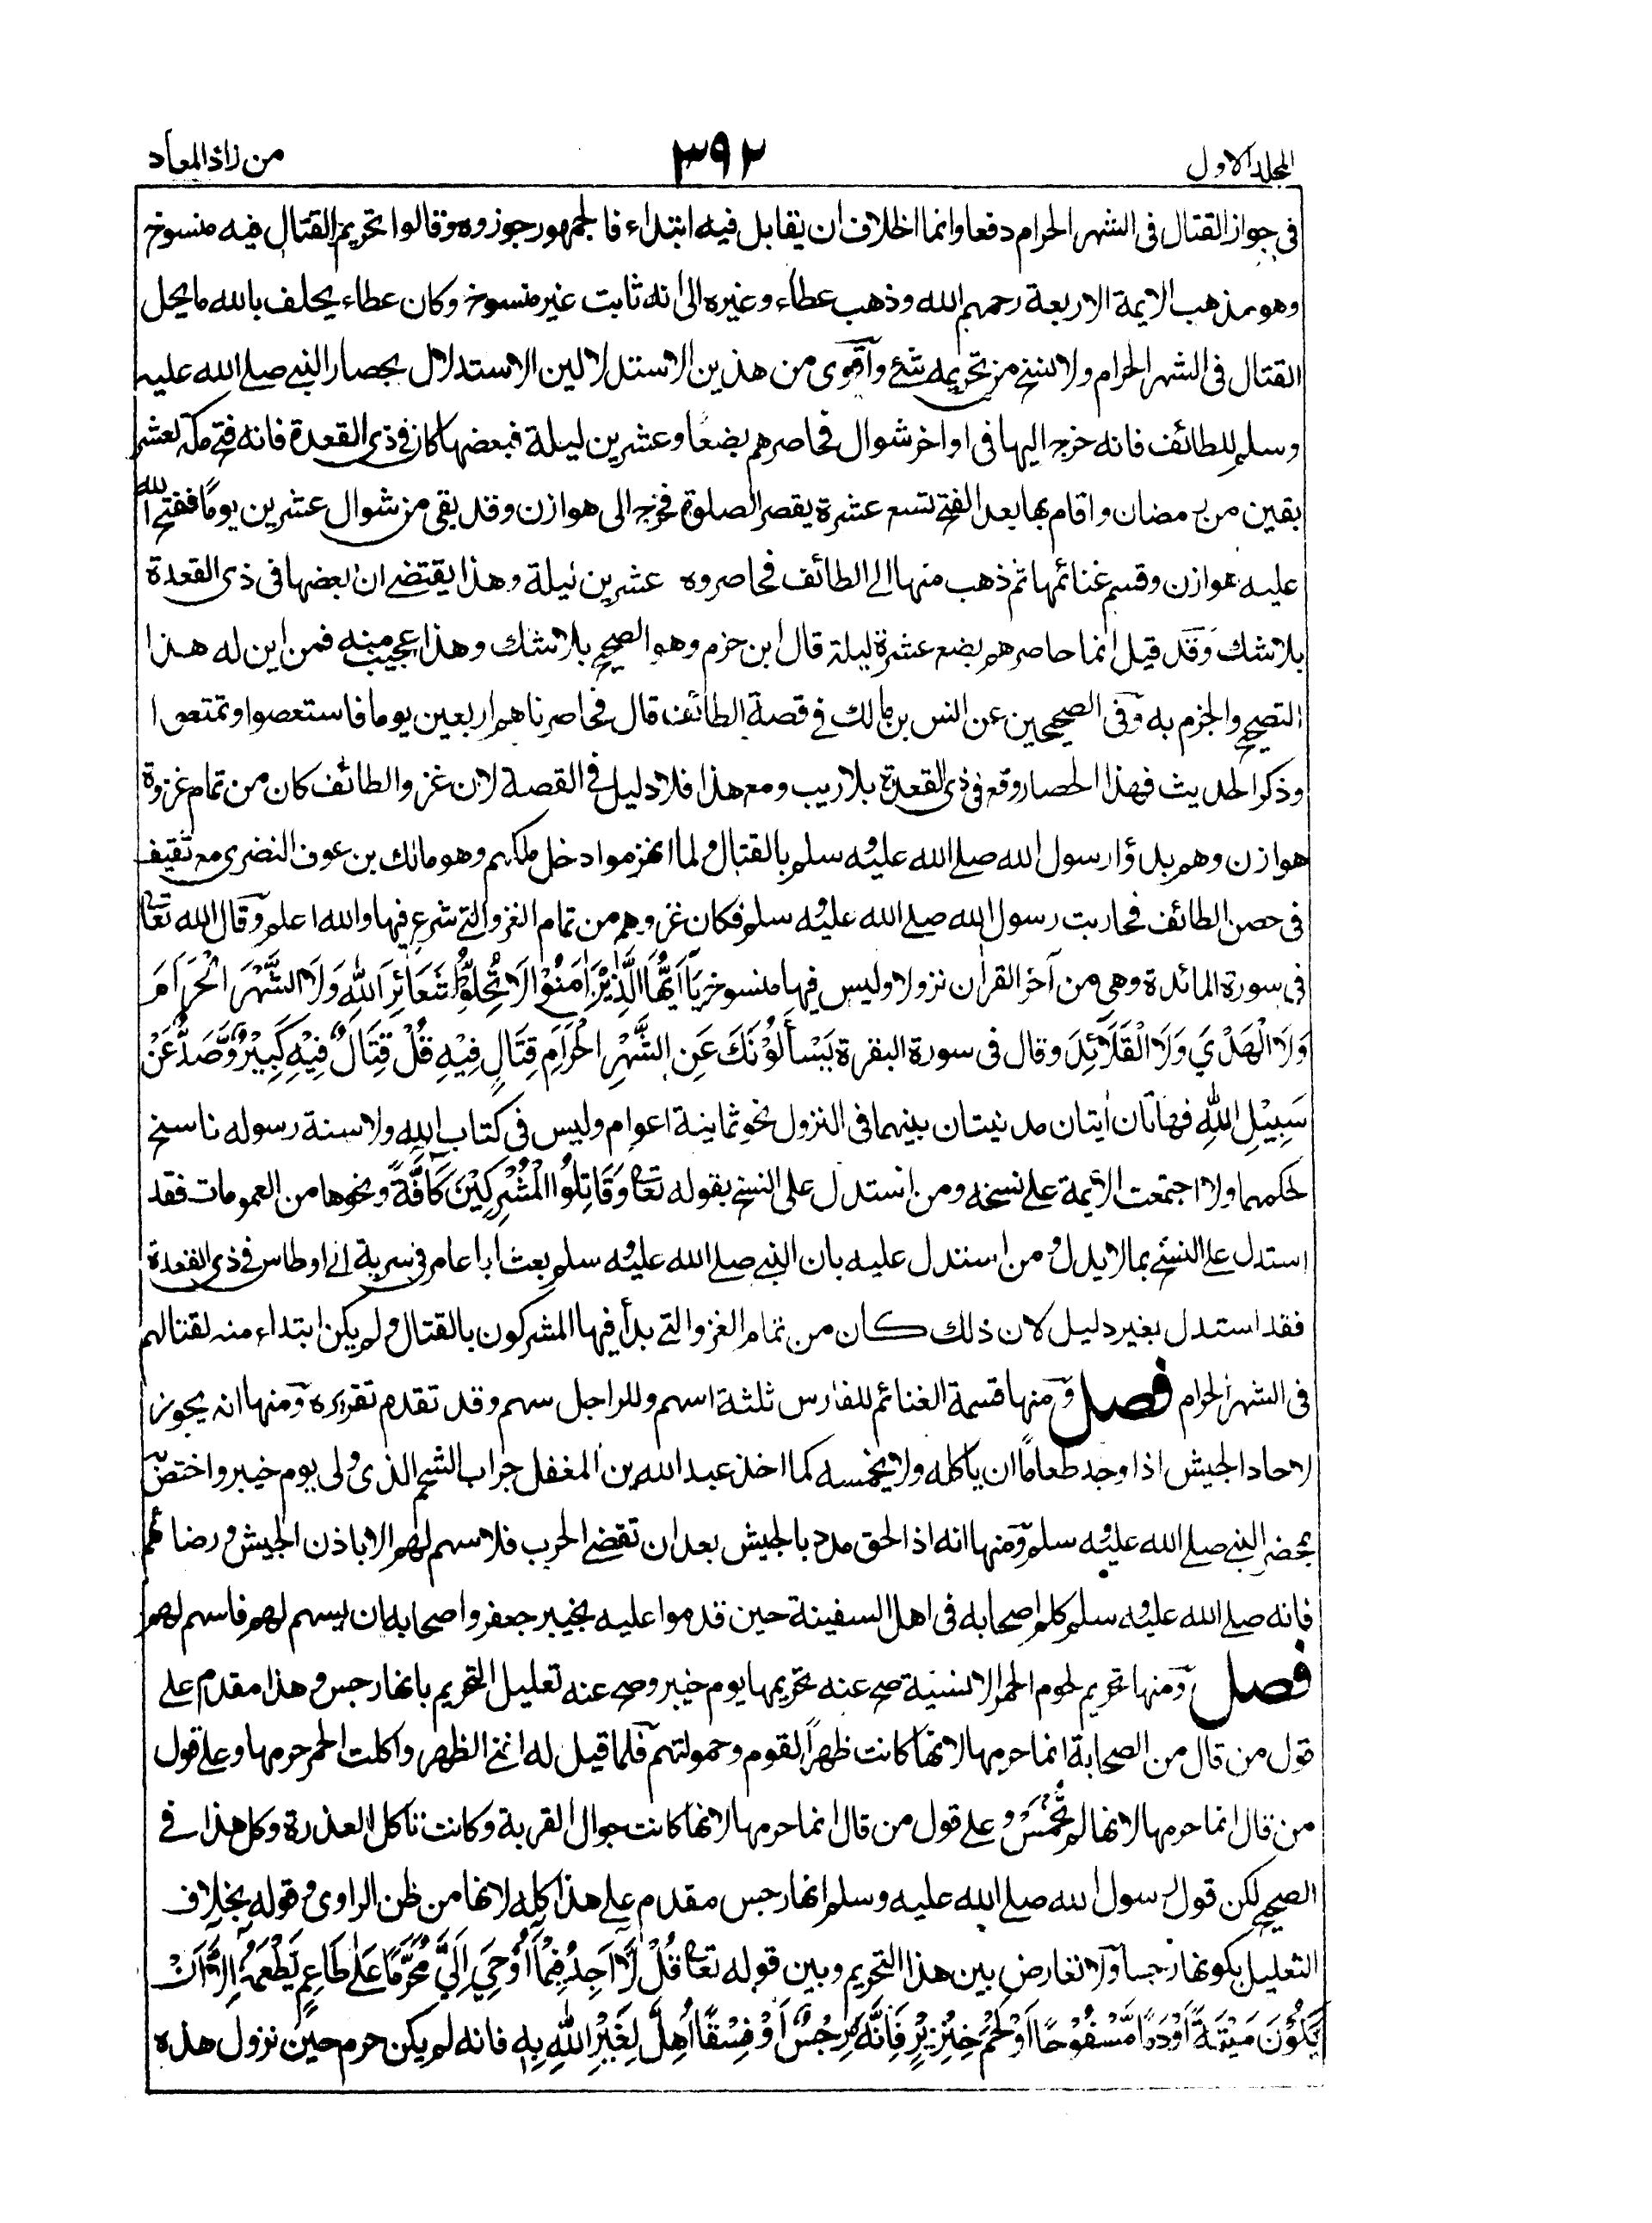 المجلد الاول
٣٩٢
من زاد المعاد
فى جواز القتال فى الشهر الحرام دفعا وانما الخلاف ان يقاتل فيه ابتداء فالجمهور جوزوه وقالوا تحريم القتال فيه منسوخ
وهو مذهب الايمة الاربعة رحمهم الله وذهب عطاء وغيره الى انه ثابت غير منسوخ وكان عطاء يحلف بالله ما يحل
القتال فى الشهر الحرام ولا نسخ من تحريمه شئ وآقوى من هذين الاستدلالين الاستدلال بحصار النبى صلے الله عليه
وسلم للطائف فانه خرج اليها فى اواخر شوال فحاصرهم بضعا وعشرين ليلة فبعضها كان فى ذى القعدة فانه فتح مكة لعشر
بقين من رمضان واقام بها بعد الفتح تسع عشرة يقصر الصلوة فخرج الى هوازن وقد بقى من شوال عشرين يومًا ففتح الله
عليه هوازن وقسم غنائمها ثم ذهب منها الے الطائف فحاصروه عشرين ليلة وهذا يقتضے ان بعضها فى ذى القعدة
بلا شك وقد قيل انما حاصرهم بضع عشرة ليلة قال ابن حزم وهو الصحيح بلا شك وهذا عجيب منه فمن اين له هذا
التصحيح والجزم به وفى الصحيحين عن انس بن مالك فے قصة الطائف قال فحاصرناهم اربعين يوما فاستعصوا وتمتعوا
وذكر الحديث فهذا الحصار وقع فى ذى القعدة بلا ريب ومع هذا فلا دليل فى القصة لان غزو الطائف كان من تمام غزوة
هوازن وهم بدؤا رسول الله صلے الله عليه وسلم بالقتال ولما انهزموا دخل ملكهم وهو مالك بن عوف النضرى مع ثقيف
فى حصن الطائف فحاربت رسول الله صلے الله عليه وسلم فكان غزوهم من تمام الغزو التے شرع فيها والله اعلم وقال الله تعالى
فى سورة المائدة وهى من آخر القران نزولا وليس فيها منسوخ يَآ اَيُّهَا الَّذِيْنَ اٰمَنُوْا لَا تُحِلُّوْا شَعَآئِرَ اللّٰهِ وَلَا الشَّهْرَ الْحَرَامَ
وَلَا الْهَدْيَ وَلَا الْقَلَآئِدَ وقال فى سورة البقرة يَسْأَلُوْنَكَ عَنِ الشَّهْرِ الْحَرَامِ قِتَالٍ فِيْهِ قُلْ قِتَالٌ فِيْهِ كَبِيْرٌ وَّصَدٌّ عَنْ
سَبِيْلِ اللّٰهِ فهاتان اٰيتان مدنيتان بينهما فى النزول نحو ثمانية اعوام وليس فى كتاب الله ولا سنة رسوله ناسخ
لحكمهما ولا اجتمعت الايمة علے نسخه ومن استدل على النسخ بقوله تعالى وَقَاتِلُوا الْمُشْرِكِيْنَ كَآفَّةً ونحوها من العمومات فقد
استدل علے النسخ بما لا يدل ومن استدل عليه بان النبى صلے الله عليه وسلم بعث ابا عامر فى سرية الے اوطاس فے ذى القعدة
فقد استدل بغير دليل لان ذلك كان من تمام الغزو التے بدأ فيها المشركون بالقتال ولم يكن ابتداء منه لقتالهم
فى الشهر الحرام فصل ومنها قسمة الغنائم للفارس ثلثة اسهم وللراجل سهم وقد تقدم تقريره ومنها انه يجوز
لاحاد الجيش اذا وجد طعامًا ان ياكله ولا يخمسه كما اخذ عبد الله بن المغفل جراب الشحم الذى ولى يوم خيبر واختص به
بمحضر النبى صلے الله عليه وسلم ومنها انه اذا لحق مدد بالجيش بعد ان تقضے الحرب فلا سهم لهم الا باذن الجيش ورضائهم
فانه صلے الله عليه وسلم كلم اصحابه فى اهل السفينة حين قدموا عليه بخيبر جعفر واصحابه ان يسهم لهم فاسهم لهم
فصل ومنها تحريم لحوم الحمر الانسية صح عنه تحريمها يوم خيبر وصح عنه تعليل التحريم بانها رجس وهذا مقدم علے
قول من قال من الصحابة انما حرمها لانها كانت ظهر القوم وحمولتهم فلما قيل له افنے الظهر واكلت الحمر حرمها وعلے قول
من قال انما حرمها لانها لم تُخَمَّسْ وعلے قول من قال انما حرمها لانها كانت جوال القرية وكانت تاكل العذرة وكل هذا فے
الصحيح لكن قول رسول الله صلے الله عليه وسلم انها رجس مقدم علے هذا كله لانها من ظن الراوى وقوله بخلاف
التعليل بكونها رجسا ولا تعارض بين هذا التحريم وبين قوله تعالى قُلْ لَّآ اَجِدُ فِيْمَآ اُوْحِيَ اِلَيَّ مُحَرَّمًا عَلٰى طَاعِمٍ يَّطْعَمُهٗ اِلَّآ اَنْ
يَّكُوْنَ مَيْتَةً اَوْ دَمًا مَّسْفُوْحًا اَوْ لَحْمَ خِنْزِيْرٍ فَاِنَّهٗ رِجْسٌ اَوْ فِسْقًا اُهِلَّ لِغَيْرِ اللّٰهِ بِهٖ فانه لم يكن حرم حين نزول هذه